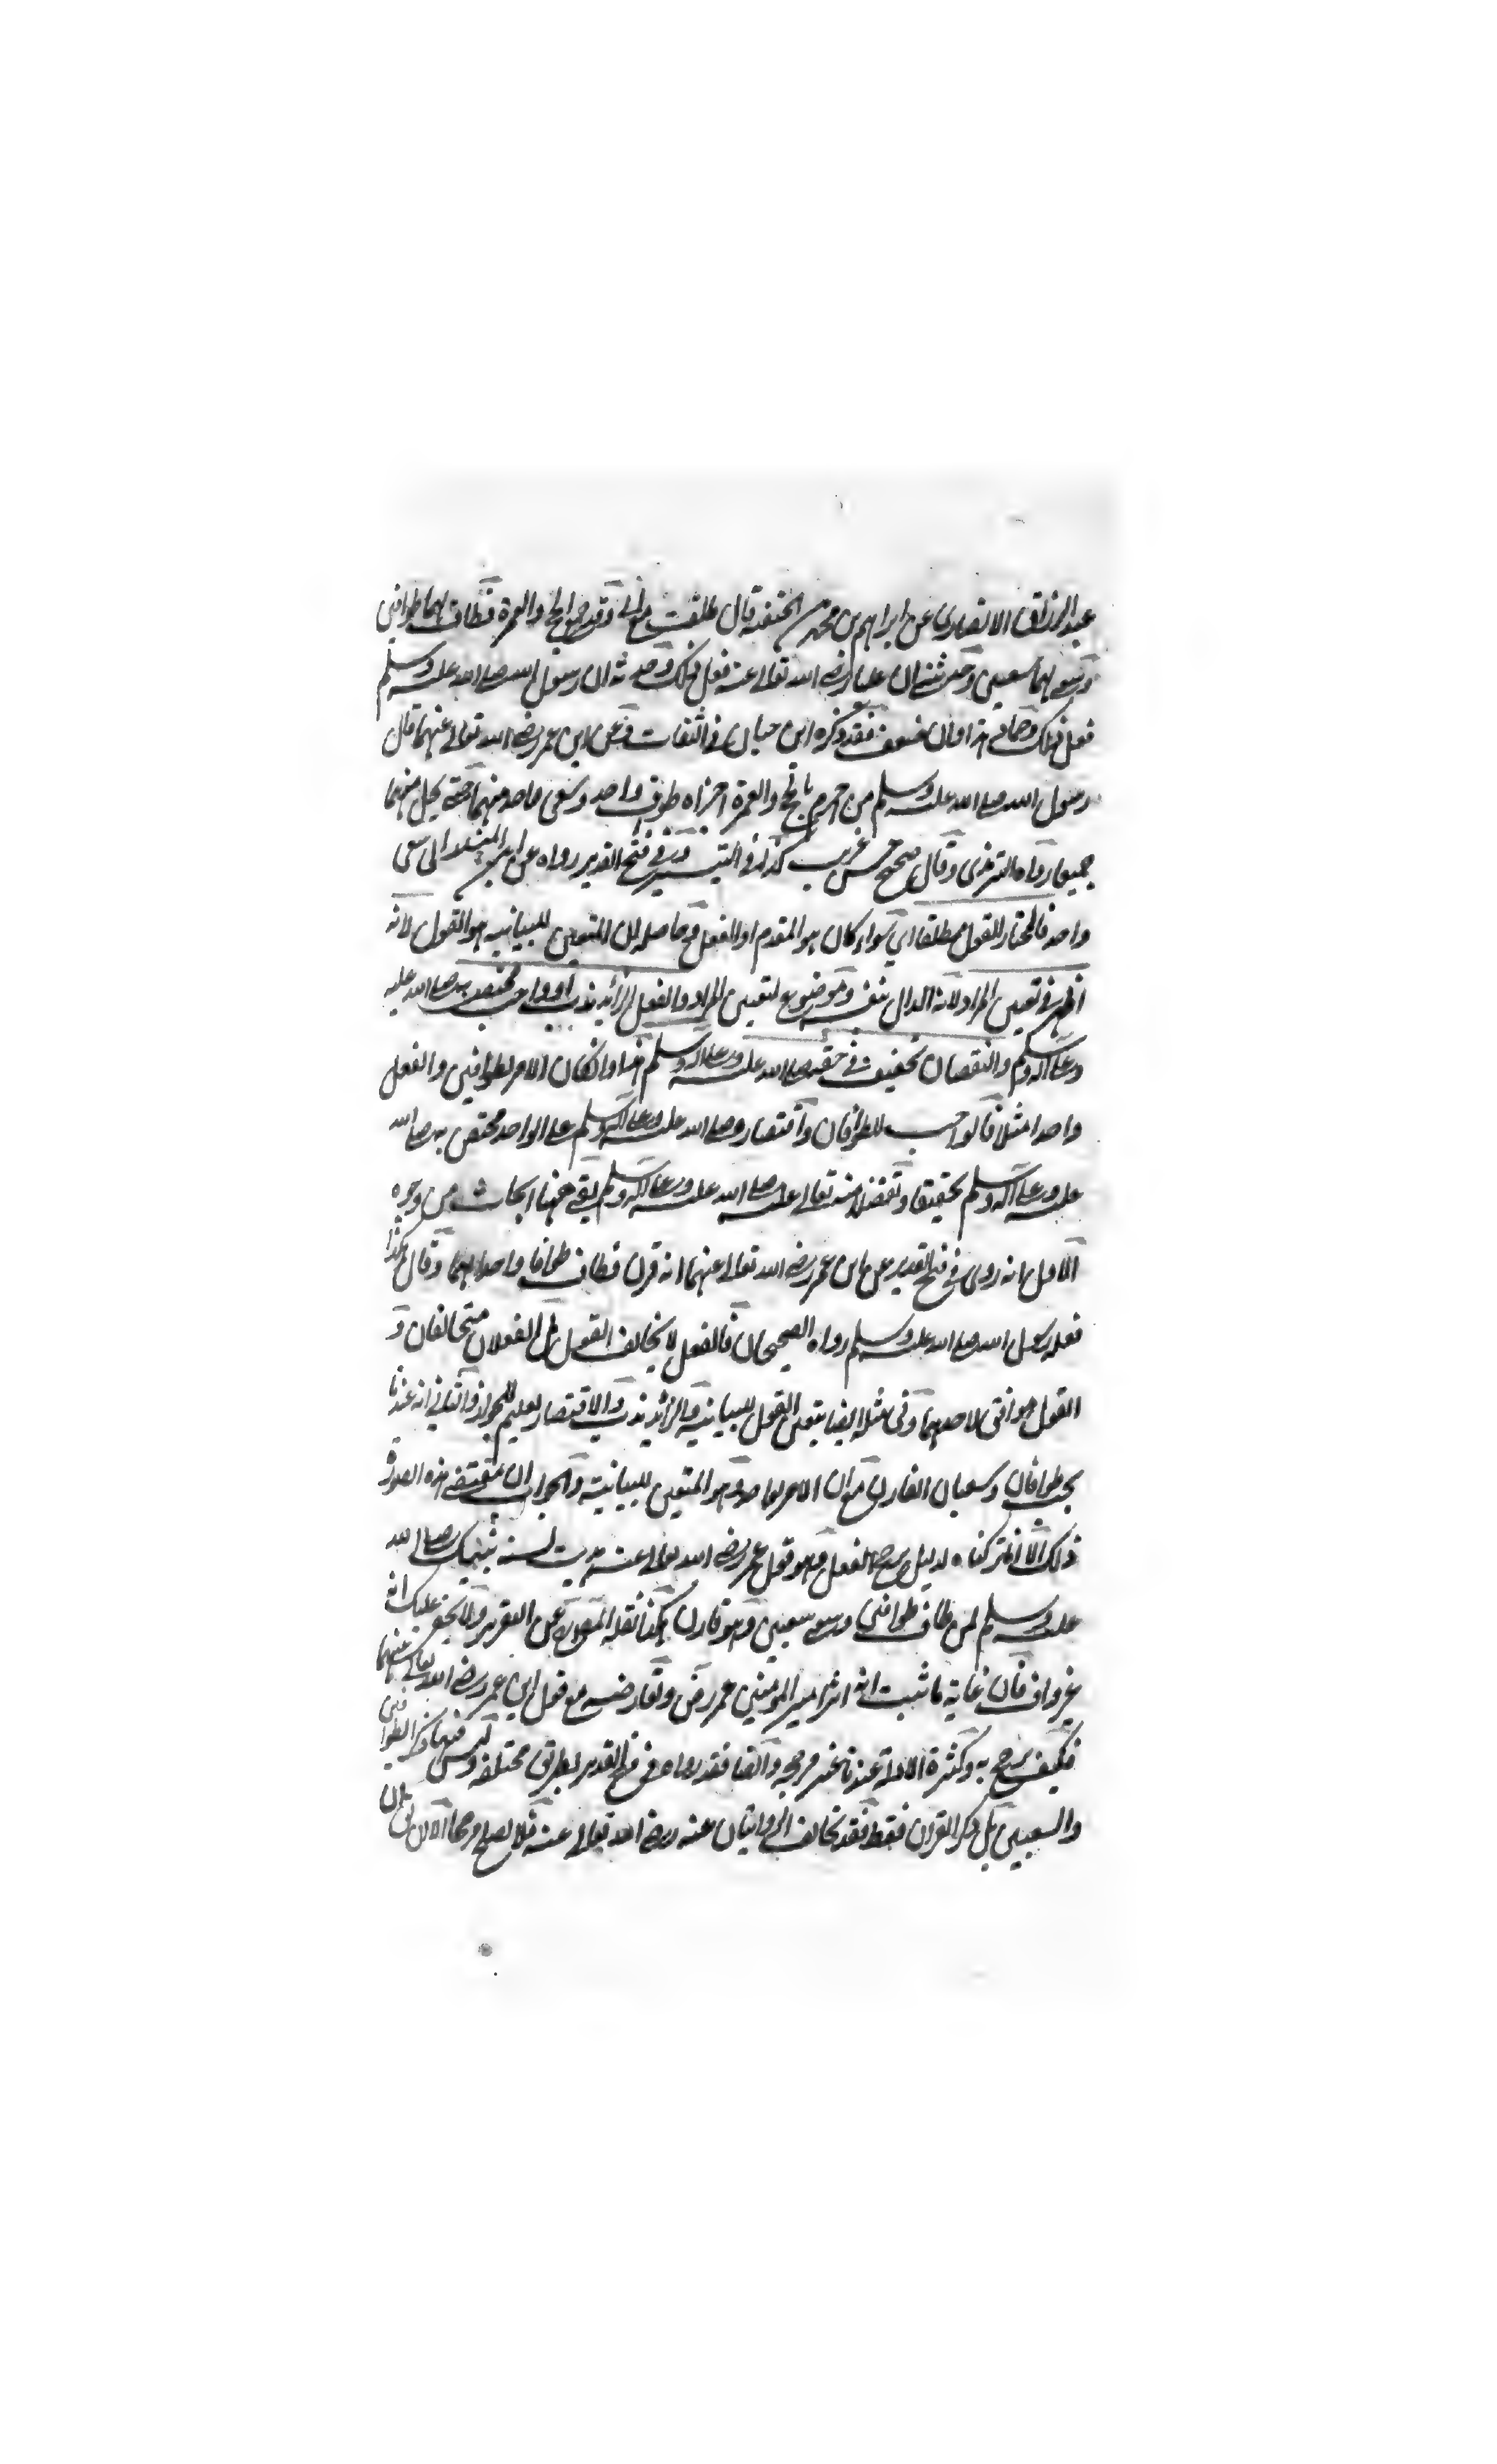 عبد الرزاق الانصاري عن ابراهيم بن محمد بن الحنفية قال طفت مع ابي وقد جمع الحج والعمرة فطاف لهما طوافين
وسعى لهما سعيين وحدثني ان عليا رضي الله تعالى عنه فعل ذلك وحدثه ان رسول الله صلى الله عليه وسلم
فعل ذلك وحماد هذا وان ضعف فقد ذكره ابن حبان في الثقات وعن ابن عمر رضي الله تعالى عنهما قال
رسول الله صلى الله عليه وسلم من احرم بالحج والعمرة اجزاه طواف واحد وسعي واحد منهما حتى يحل منهما
جميعا رواه الترمذي وقال صحيح حسن غريب كذا في التيسير وفي فتح القدير رواه عن
واحد فالمختار القول مطلقا اي سواء كان هو المقدم او الفعل وحاصله ان المتعين للبيانية هو القول لانه
اظهر في تعيين المراد لانه الدال بنفسه وموضوع لتعيين المراد والفعل الزائد ندب او واجب مختص به صلى الله عليه
وعلى آله وسلم والنقصان تخفيف في حقه صلى الله عليه وعلى آله وسلم فاذا كان الامر بطوافين والفعل
واحدا مثلا فالواجب الطوافان واقتصاره صلى الله عليه وعلى آله وسلم على الواحد مختص به صلى الله
عليه وعلى آله وسلم تخفيفا وتفضلا منه تعالى عليه صلى الله عليه وعلى آله وسلم بقي ههنا ابحاث من وجوه
الاول انه روى في فتح القدير عن ابن عمر رضي الله تعالى عنهما انه قرن فطاف طوافا واحدا لهما وقال هكذا
فعله رسول الله صلى الله عليه وسلم رواه الصحيحان فالفعل لا يخالف القول بل الفعلان متخالفان و
القول موافق لاحدهما وفي مثله ايضا يتعين القول للبيانية والزائد ندب والاقتصار تعليم للجواز والثاني انه عندنا
يجب طوافان وسعيان للقارن مع ان الامر بواحد وهو المتعين للبيانية والجواب ان مقتضى هذه الصورة
ذلك الا انا تركناه لدليل يرجح الفعل وهو قول عمر رضي الله تعالى عنه هديت لسنة نبيك صلى الله
عليه وسلم لمن طاف طوافين وسعى سعيين وهو قارن هكذا نقله المصنف عن التقرير ولا يخفى عليك انه
غير واف فان غاية ما ثبت انه اثر امير المؤمنين عمر رض وتعارضه مع قول ابن عمر رضي الله تعالى عنهما
فكيف يرجح به وكثرة الادلة عندنا غير مرجحة وايضا فقد رواه في فتح القدير بطرق مختلفة وليس فيها ذكر الطوافين
والسعيين بل ذكر القران فقط فقد تخالف الروايتان عنه رضي الله تعالى عنه فلا يصلح مرجحا الا ان